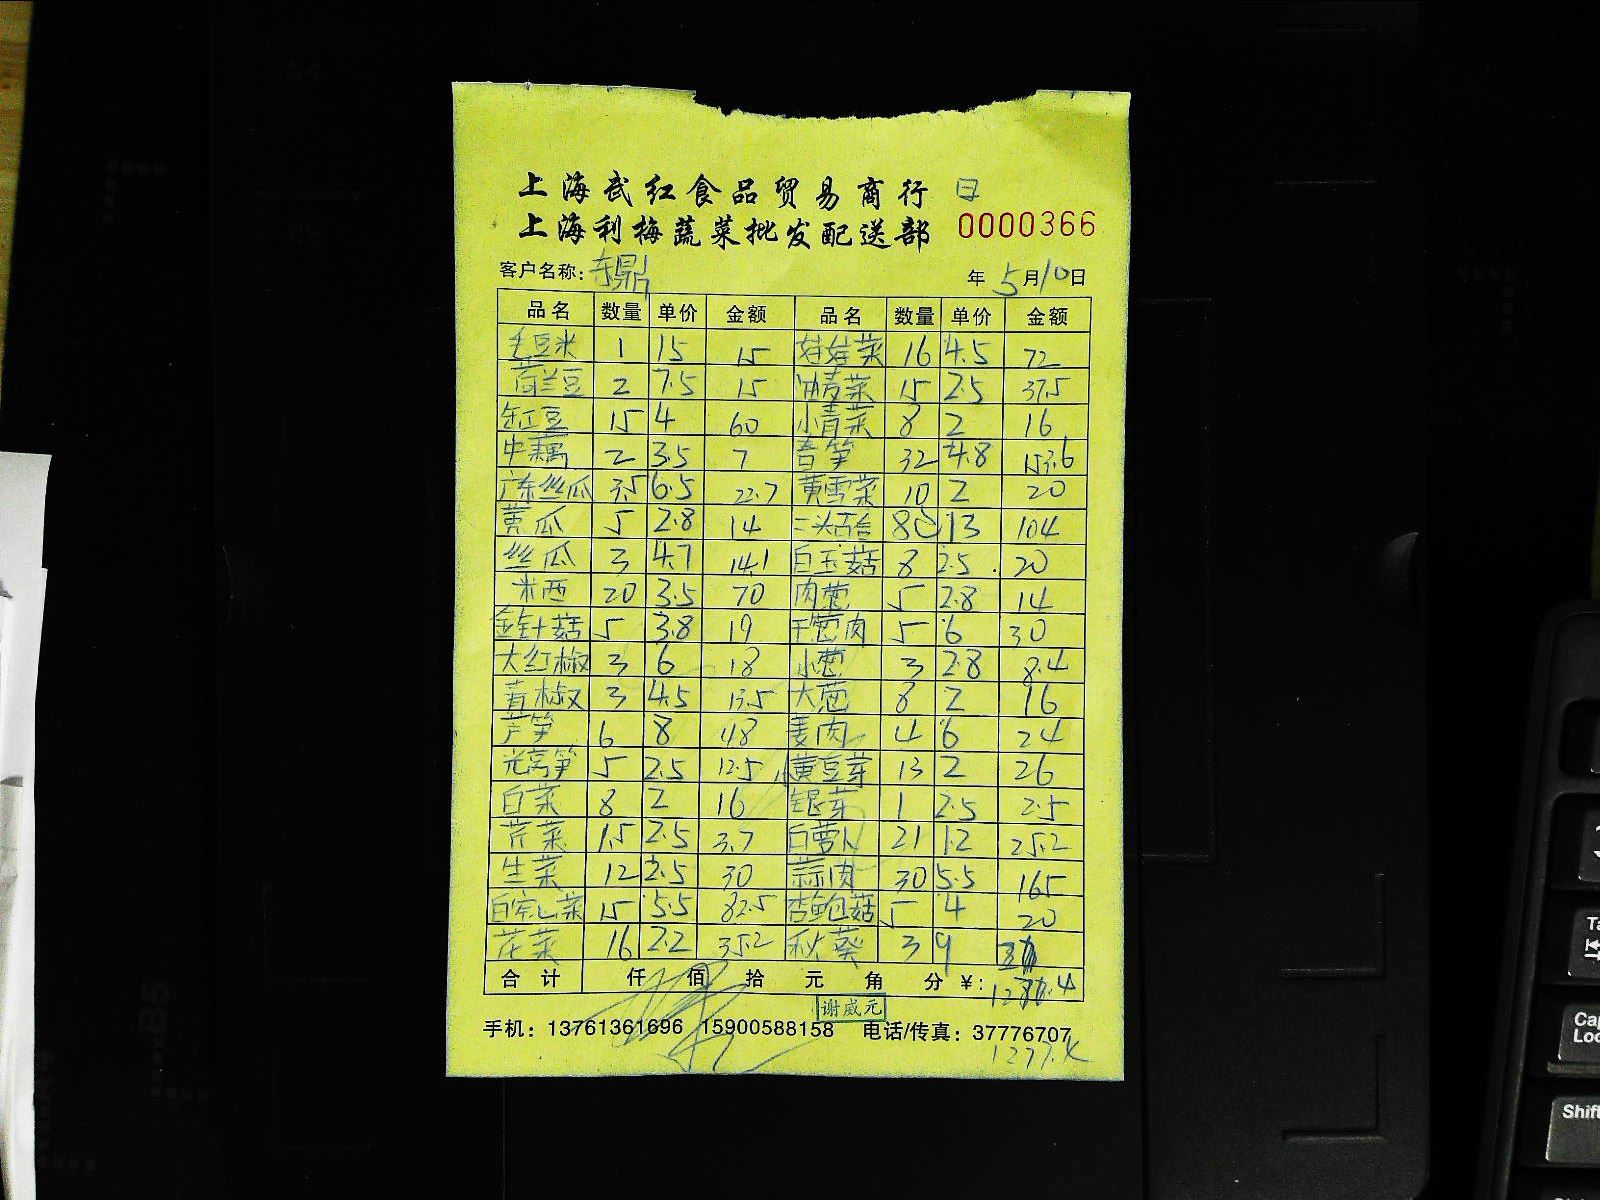 上海武红食品贸易商行 日
上海利梅蔬菜批发配送部 0000366
客户名称: 东鼎 年 5月10日
品名 数量 单价 金额 品名 数量 单价 金额
毛豆米 1 15 15 娃娃菜 16 4.5 72
荷兰豆 2 7.5 15 油麦菜 15 2.5 37.5
缸豆 15 4 60 小青菜 8 2 16
中藕 2 3.5 7 杏笋 32 4.8 153.6
广东丝瓜 3.5 6.5 22.7 黄雪菜 10 2 20
黄瓜 5 2.8 14 二头百合 8 13 104
丝瓜 3 4.7 14.1 白玉菇 8 2.5 20
米西 20 3.5 70 肉葱 5 2.8 14
金针菇 5 3.8 19 干葱肉 5 6 30
大红椒 3 6 18 小葱 3 2.8 8.4
青椒 3 4.5 13.5 大葱 8 2 16
芦笋 6 8 48 姜肉 4 6 24
光莴笋 5 2.5 12.5 黄豆芽 13 2 26
白菜 8 2 16 银芽 1 2.5 2.5
芹菜 1.5 2.5 3.7 白萝卜 21 1.2 25.2
生菜 12 2.5 30 蒜肉 30 5.5 165
白宗心菜 15 5.5 82.5 杏鲍菇 5 4 20
花菜 16 2.2 35.2 秋葵 3 9
合计 仟 佰 拾 元 角 分 ¥:
谢威元
手机: 13761361696 15900588158 电话/传真: 37776707
1277.4
Ta
Cap
Loc
Shift